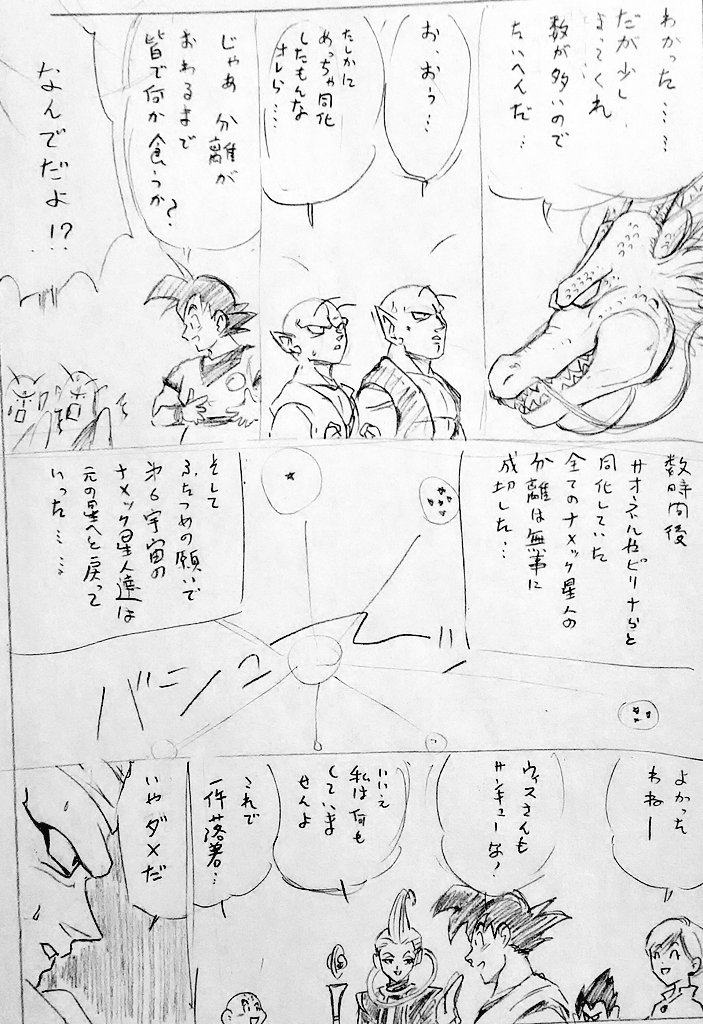 わかった……
だが少し
まってくれ
数が多いので
たいへんだ…
お、おう…
たしかに
めっちゃ同化
したもんな
オレら…
じゃあ 分離が
おわるまで
皆で何か食うか?
なんでだよ!?
数時間後
サオネルやピリナらと
同化していた
全てのナメック星人の
分離は無事に
成功した…
そして
ふたつめの願いで
第6宇宙の
ナメック星人達は
元の星へと戻って
いった……
よかった
わねー
ウイスさんも
サンキューな!
いいえ
私は何も
していま
せんよ
これで
一件落着…
いやダメだ